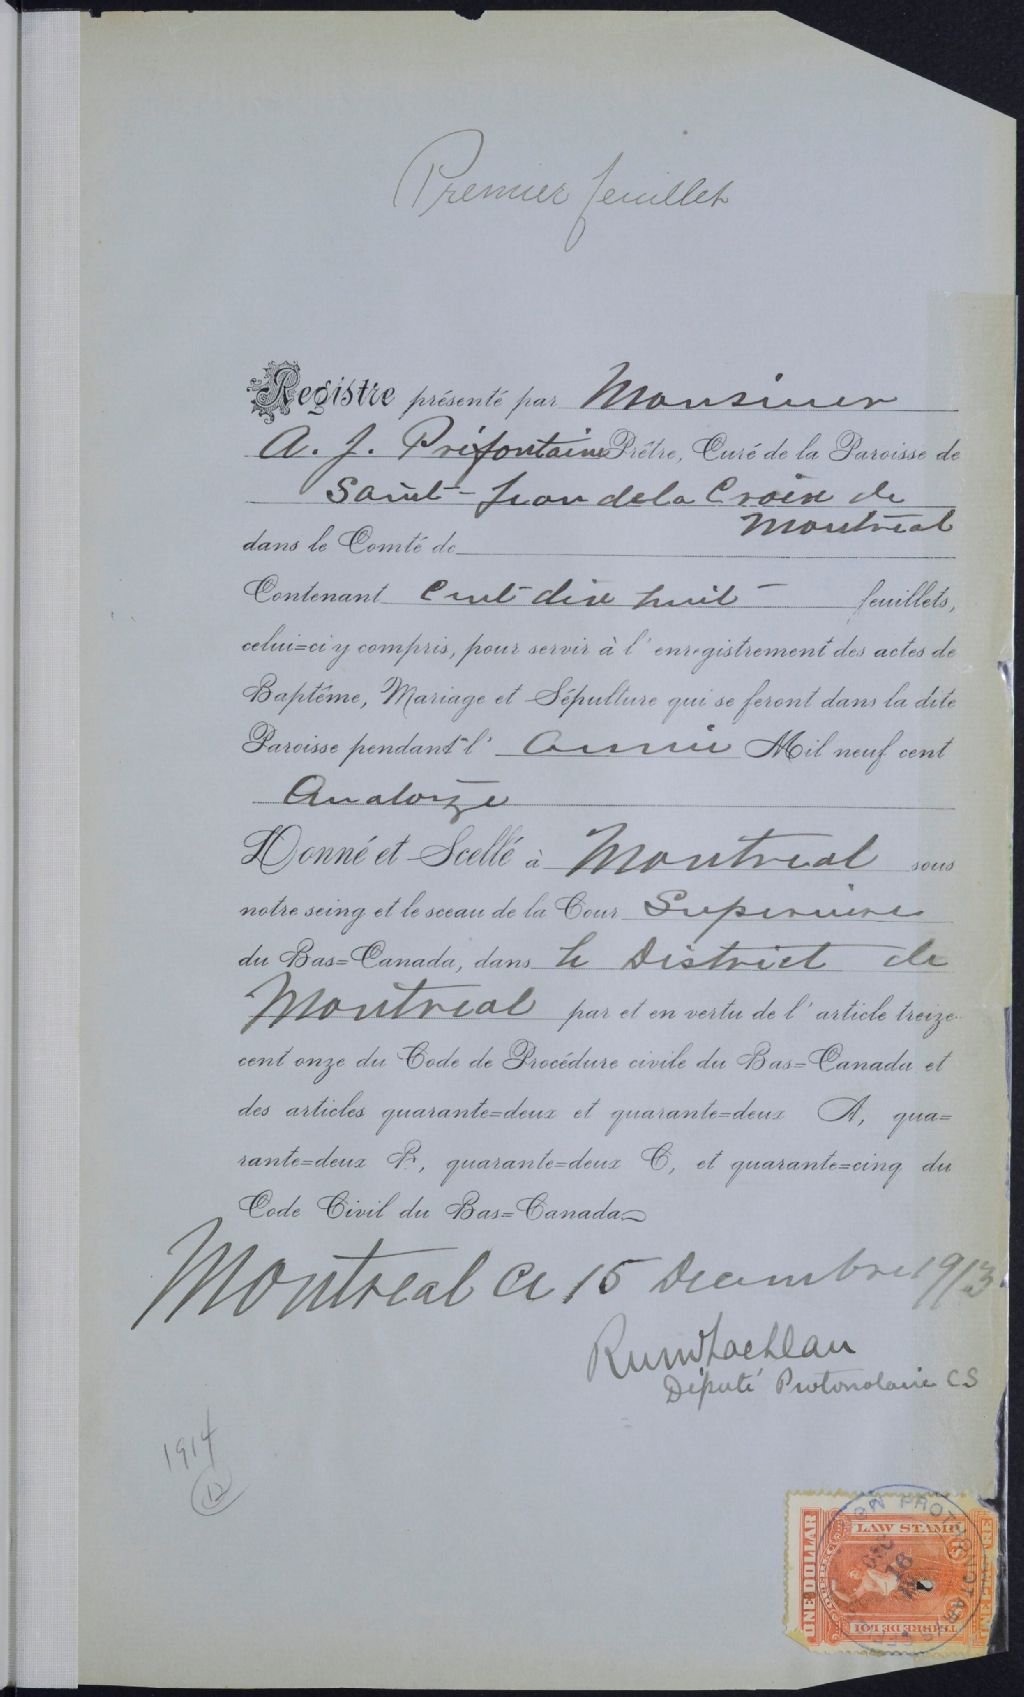 Premier feuillet
Registre présenté par Monsieur
A. J. Préfontaine Prêtre, Curé de la Paroisse de
Saint-Jean de la Croix de
Montréal
dans le Comté de
Contenant Cent dix huit feuillets,
celui=ci y compris, pour servir à l'enregistrement des actes de
Baptême, Mariage et Sépulture qui se feront dans la dite
Paroisse pendant l' année Mil neuf cent
Quatorze
Donné et Scellé à Montreal sous
notre seing et le sceau de la Cour Superieure
du Bas=Canada, dans le District de
Montreal par et en vertu de l'article treize
cent onze du Code de Procédure civile du Bas=Canada et
des articles quarante=deux et quarante=deux A, qua=
rante=deux B, quarante=deux C, et quarante=cinq du
Code Civil du Bas=Canada
Montreal Ce 15 Decembre 1913
Député Protonotaire C.S
1914
12
ONE DOLLAR
LAW STAMP
QUEBEC
TIMBRE DE LOI
PROTHONOTARY'S
DEC
16